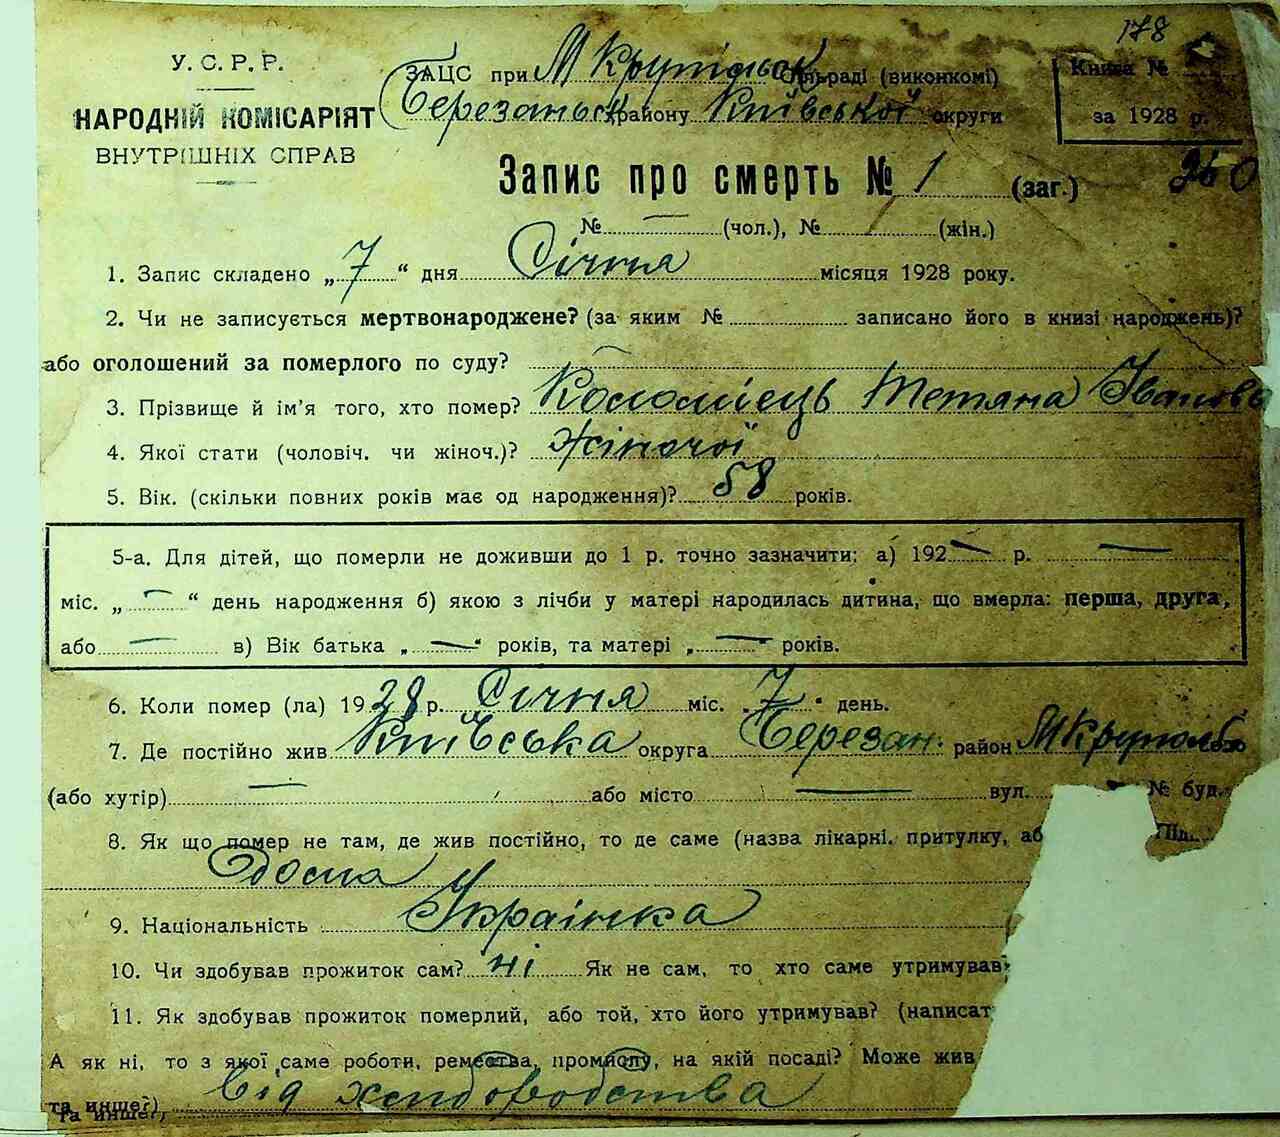 178
У. С. Р. Р.
НАРОДНІЙ КОМІСАРІЯТ
ВНУТРІШНІХ СПРАВ
ЗАЦС при сільраді (виконкомі)
Березанськ району Київської округи
Книга №
за 1928 р.
Запис про смерть № 1 (заг.)
№ — (чол.), № 1 (жін.)
1. Запис складено „7“ дня Січня місяця 1928 року.
2. Чи не записується мертвонароджене? (за яким № записано його в книзі народжень)?
або оголошений за померлого по суду? —
3. Прізвище й ім’я того, хто помер? Коломієць Тетяна Іванова
4. Якої стати (чоловіч. чи жіноч.)? Жіночої
5. Вік. (скільки повних років має од народження)? 58 років.
5-а. Для дітей, що померли не доживши до 1 р. точно зазначити: а) 192— р. —
міс. „—“ день народження б) якою з лічби у матері народилась дитина, що вмерла: перша, друга,
або — в) Вік батька „—“ років, та матері „—“ років.
6. Коли помер (ла) 1928 р. Січня міс. „7“ день.
7. Де постійно жив Київська округа Березан. район
(або хутір) — або місто — вул. — № буд.
8. Як що помер не там, де жив постійно, то де саме (назва лікарні. притулку, аб
Вдома
9. Національність Українка
10. Чи здобував прожиток сам? ні Як не сам, то хто саме утримував
11. Як здобував прожиток померлий, або той, хто його утримував? (написат
А як ні, то з якої саме роботи, ремества, промислу, на якій посаді? Може жив
та инше?) Від
та инше?)